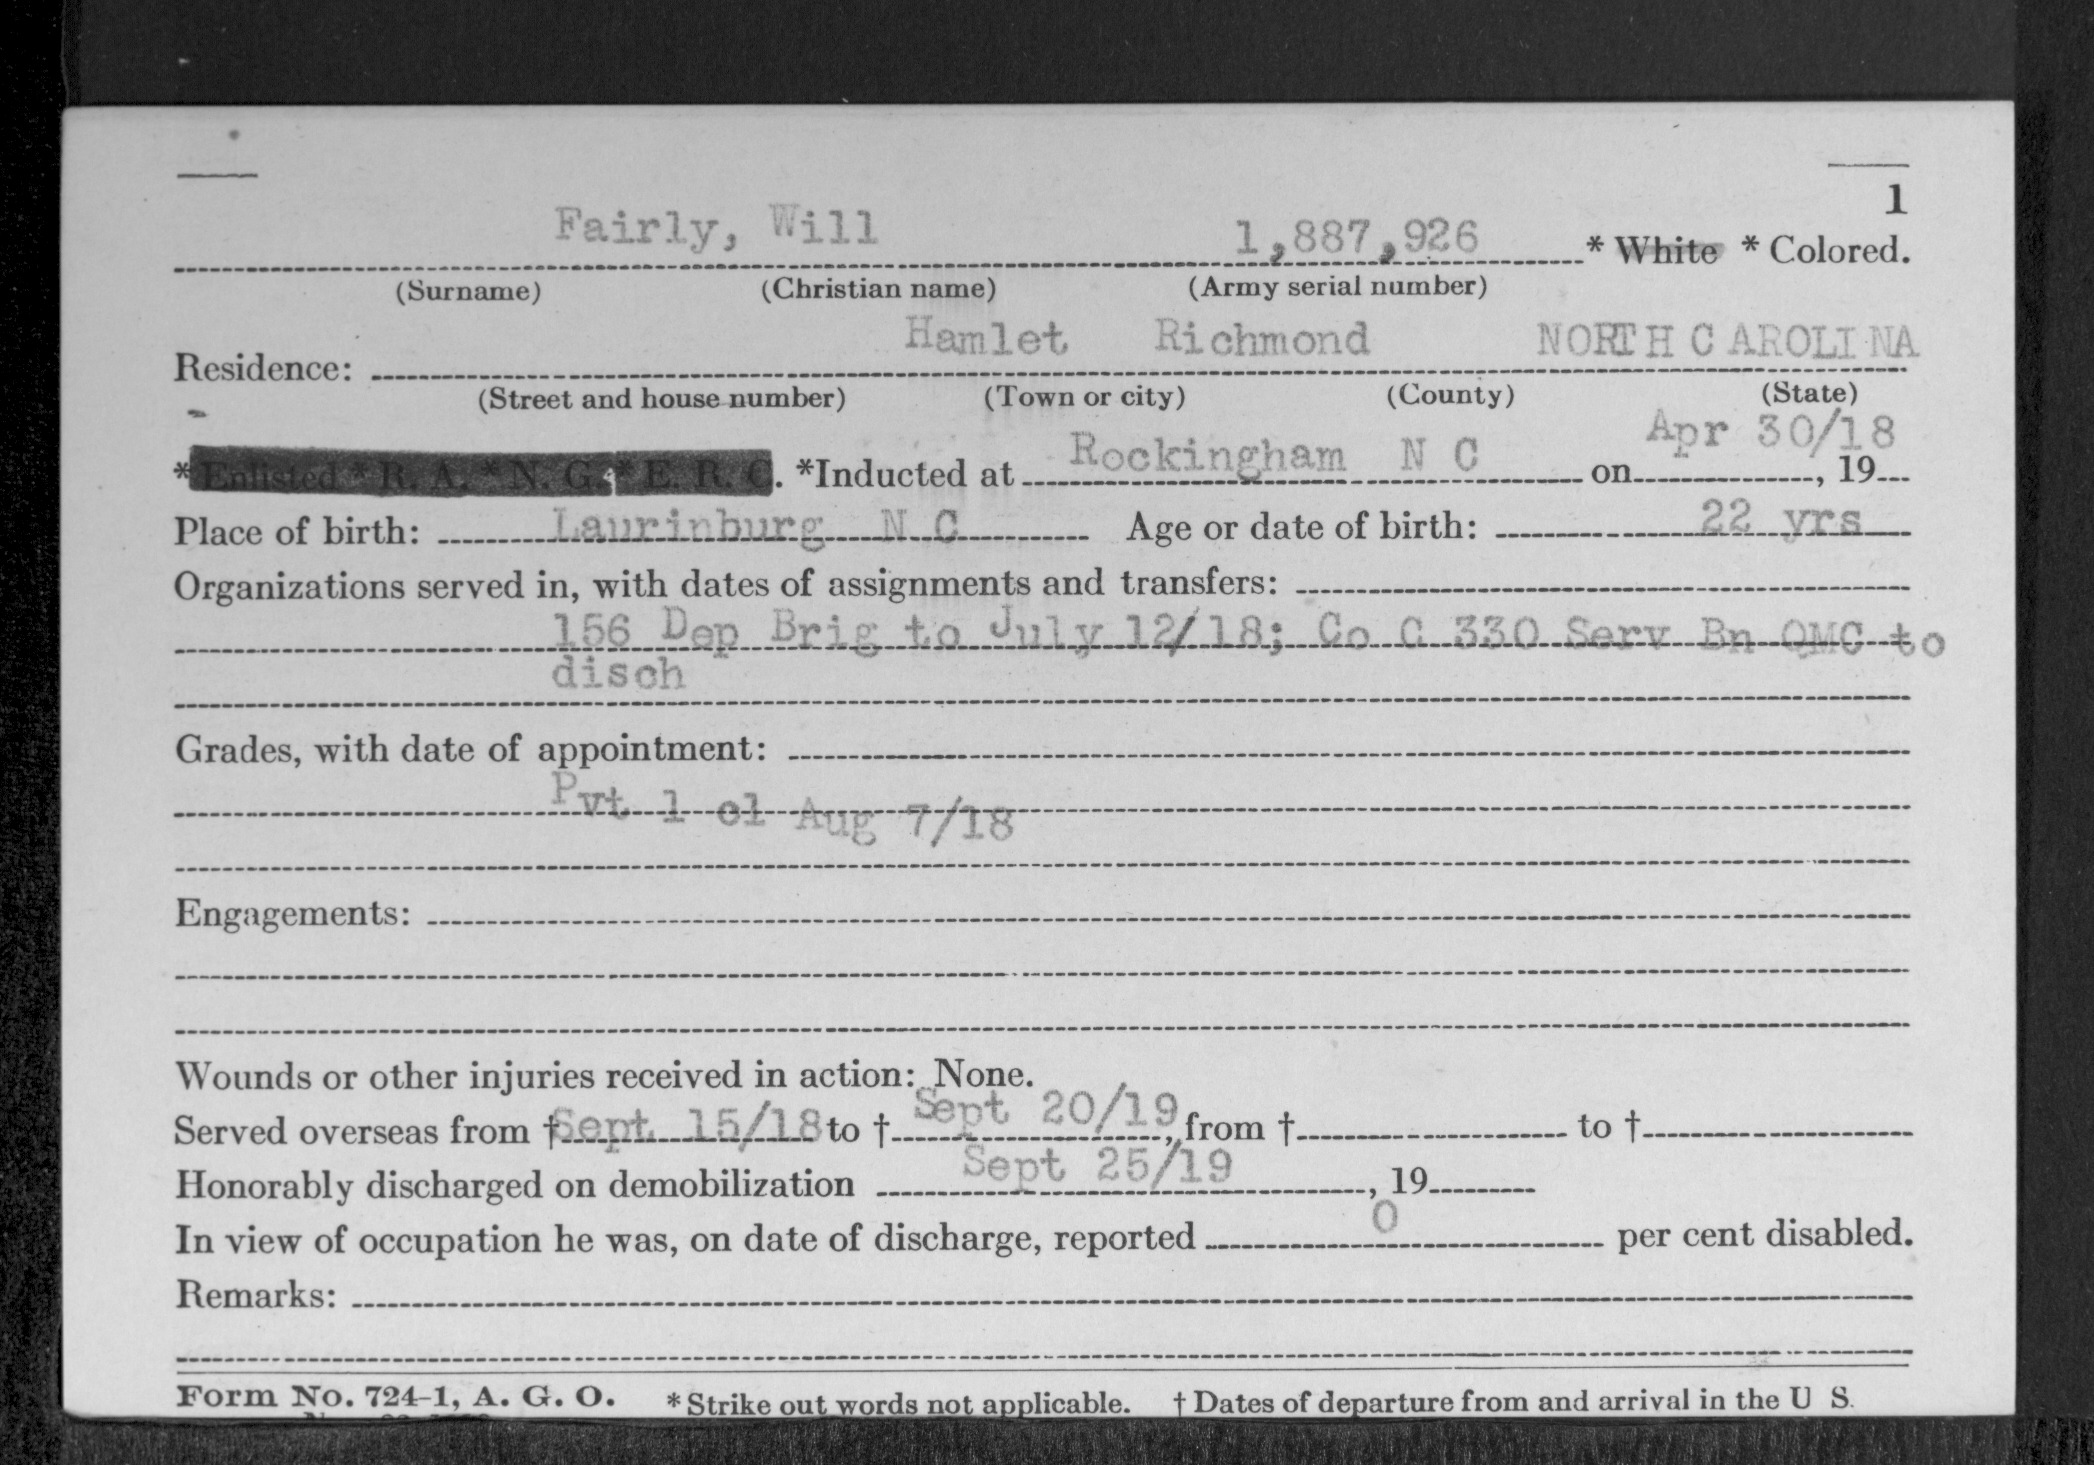 1
Fairly, Will 1,887,926 * White * Colored.
(Surname) (Christian name) (Army serial number)
Hamlet Richmond NORTH CAROLINA
Residence:
(Street and house number) (Town or city) (County) (State)
Apr 30/18
*Enlisted * R. A. * N. G. * E. R. C. *Inducted at Rockingham N C on , 19
Place of birth: Laurinburg N C Age or date of birth: 22 yrs
Organizations served in, with dates of assignments and transfers:
156 Dep Brig to July 12/18; Co C 330 Serv Bn QMC to
disch
Grades, with date of appointment:
Pvt 1 cl Aug 7/18
Engagements:
Wounds or other injuries received in action: None.
Served overseas from † Sept 15/18 to † Sept 20/19, from † to †
Honorably discharged on demobilization Sept 25/19, 19
In view of occupation he was, on date of discharge, reported 0 per cent disabled.
Remarks:
Form No. 724-1, A. G. O. * Strike out words not applicable. † Dates of departure from and arrival in the U S.